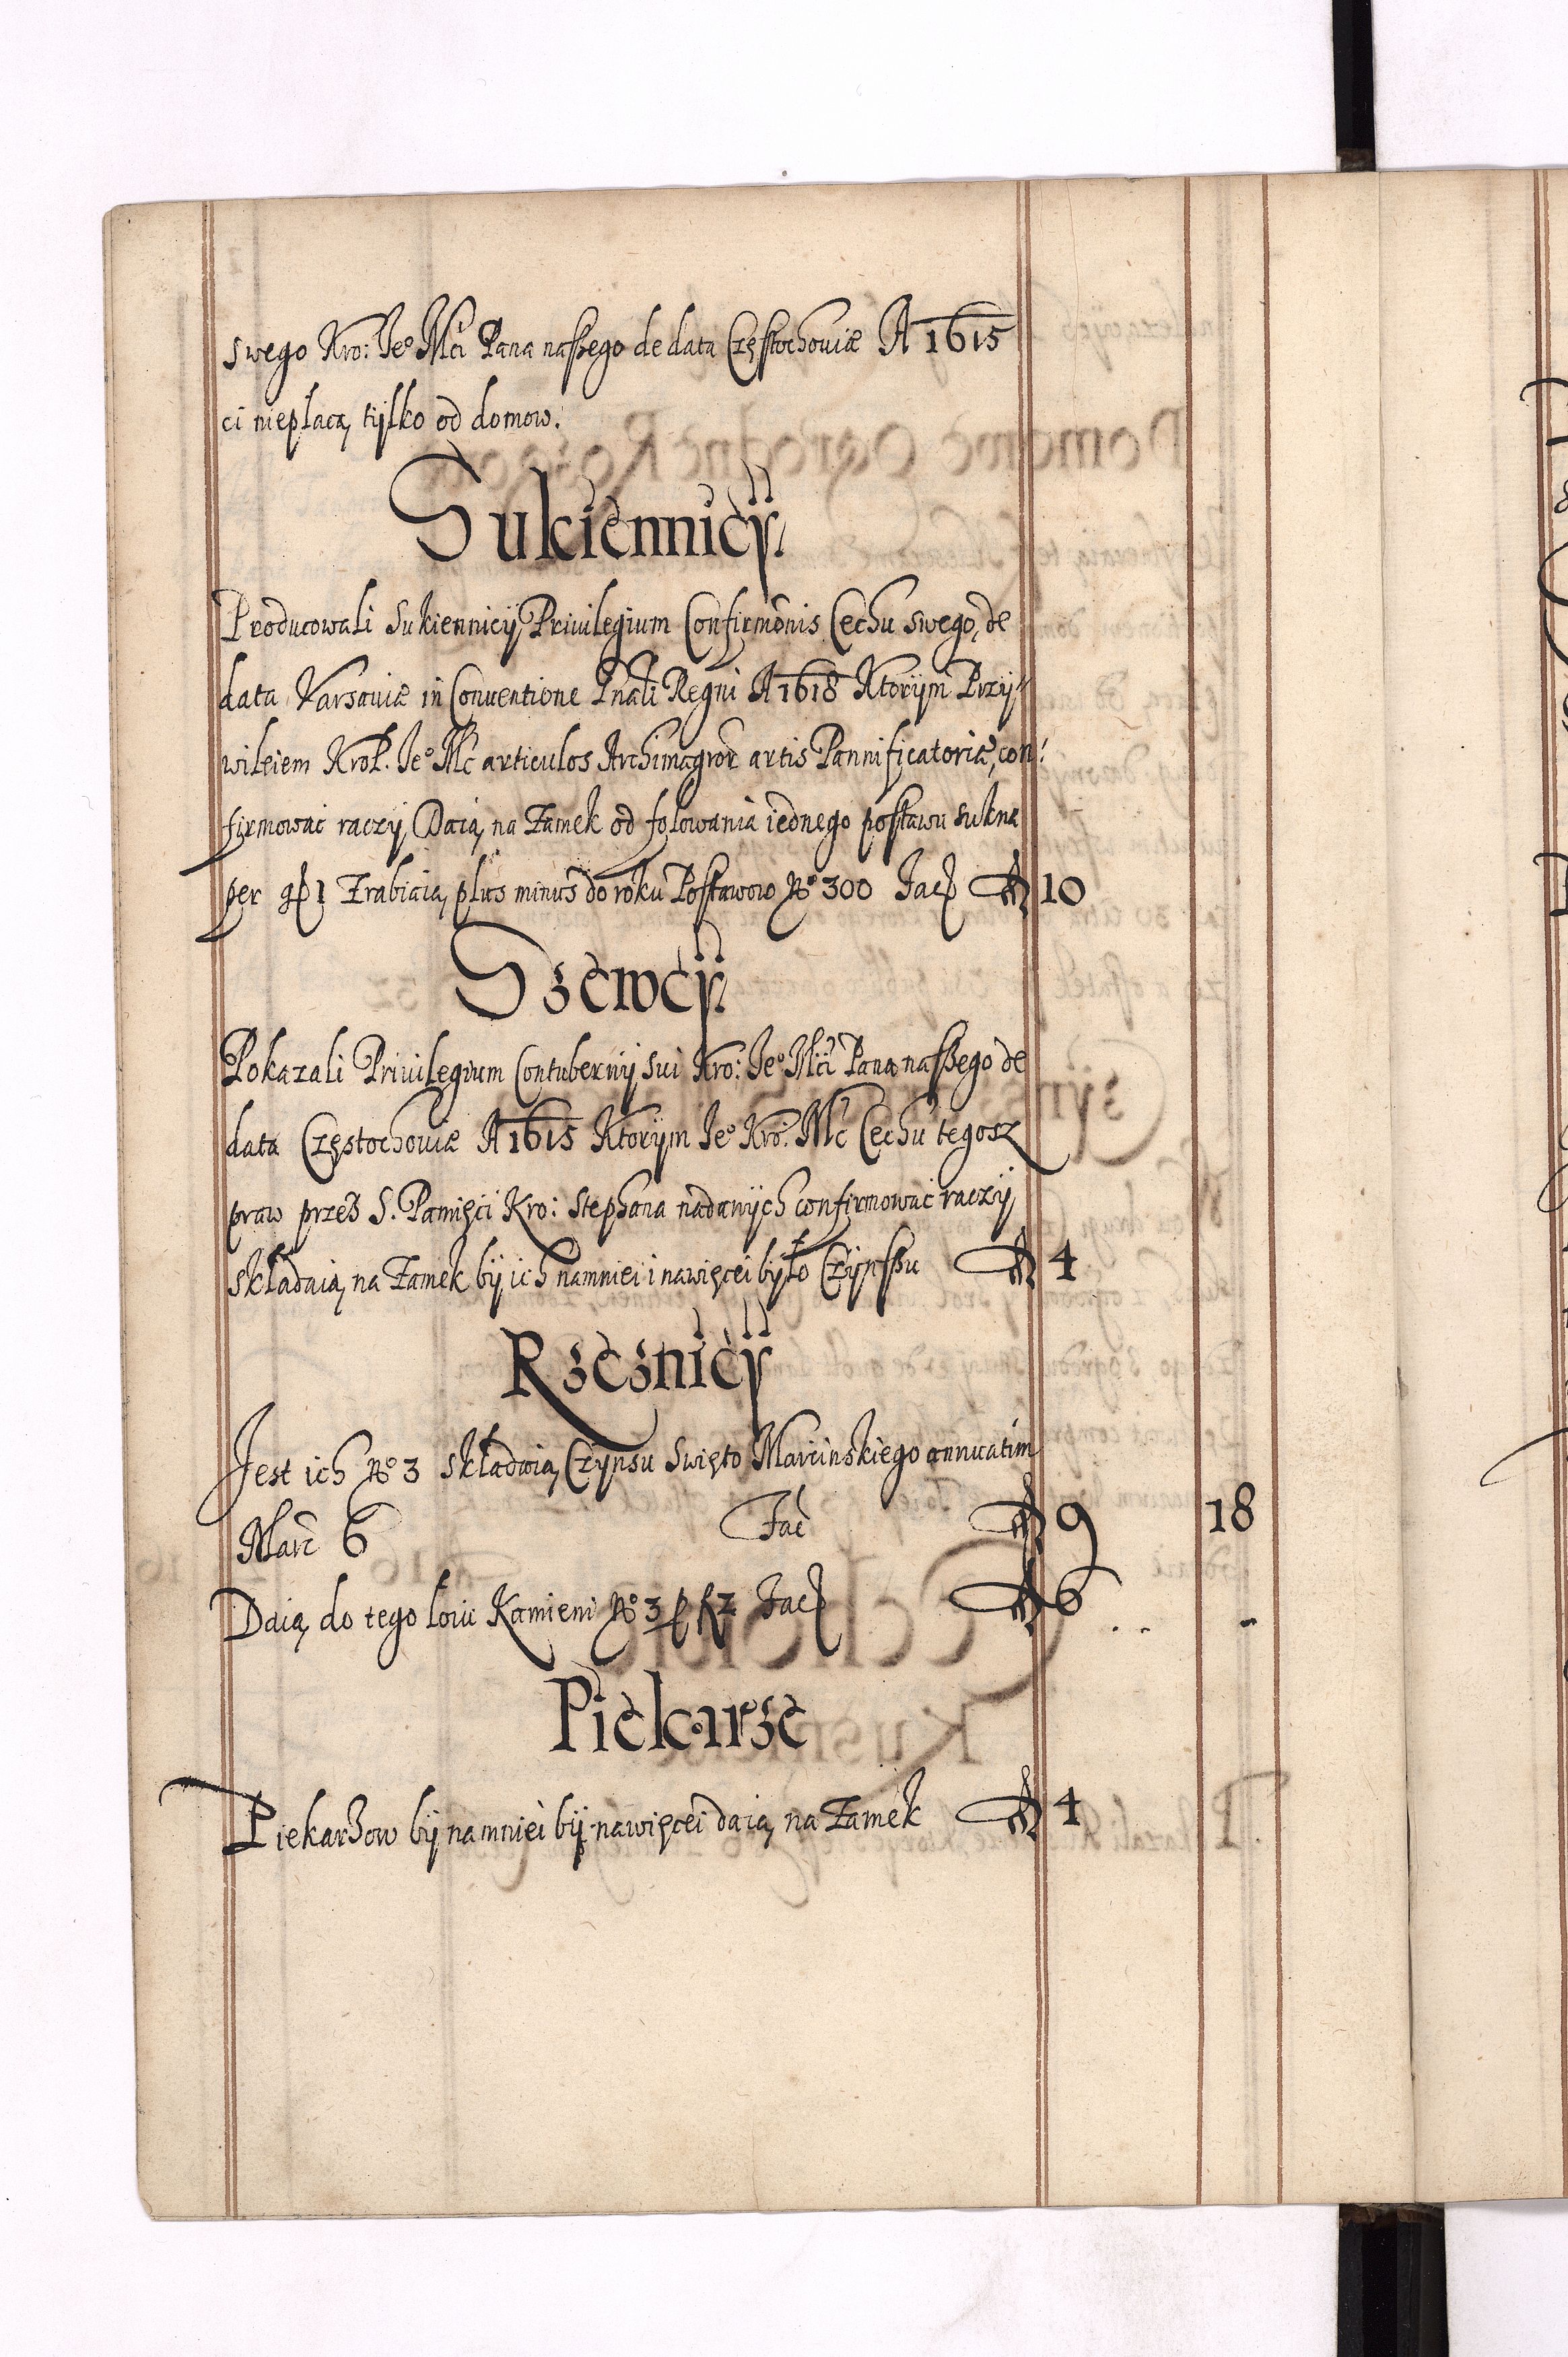 swego Kro: Je° Mći Pana nassego de data Częstochouiæ A 1615
ci nieplacą, tylko od domow.
Sukiennicÿ.
Producowali Sukiennicÿ, Priuilegium Confirmōnis Cechu swego, de
data Varsauiæ in Conuentione Gnāli Regni A 1618 Ktorÿm Przÿ-
wileiem Krol. Je° Mć articulos Archimagror̄ artis Pannificatoriæ, con:
firmować raczÿ, Daią, na Zamek od folowania iednego postawu sukna
per gṗ 1 Zrabiaią, plus minus do roku Postawow No 300 Fac̄ 10
Szewcÿ.
Pokazali Priuilegium Contubernÿ sui Kro: Je° Mći Pana nassego de
data Częstochouiæ A 1615 Ktorÿm Je° Kro: Mć Cechu tegosz
praw przes S. Pamięci Kro: Stephana nadanÿch confirmować raczÿ,
składaią, na Zamek bÿ ich namniei i nawięcei bÿło Czÿnssu 4
Rzeznicÿ
Jest ich No 3 składaią, Czÿnsu Swięto Marcinskiego annuatim
Marc̄ 6 Fac̄ 9 18
Daią, do tego łoiu Kamieni No 3 p f 2 Fac̄ 6 -
Piekarze
Piekarzow bÿ namniei bÿ nawięcei daią, na Zamek 4